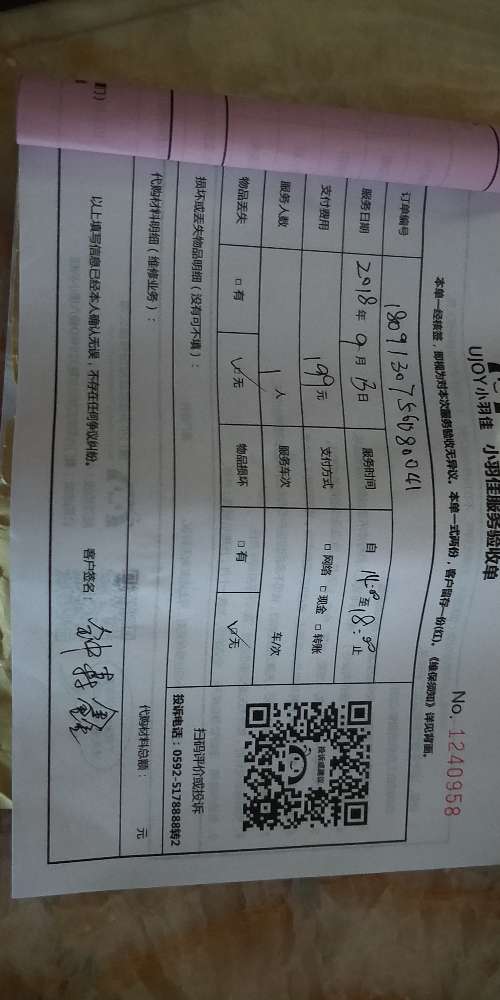 UJOY小羽佳 小羽佳服务验收单
No. 1240958
本单一经核签，即视为对本次服务验收无异议。本单一式两份，客户留存一份(红)。《维保须知》详见背面。
订单编号 1809130756080041
服务日期 2018年9月13日 服务时间 自 14:00 至 18:00 止
支付费用 199元 支付方式 □ 网络 □ 现金 □ 转账
服务人数 1 人 服务车次 车/次
物品丢失 □ 有 ☑ 无 物品损坏 □ 有 ☑ 无
投诉或建议
扫码评价或投诉
投诉电话：0592-5178888转2
损坏或丢失物品明细（没有可不填）：
代购材料明细（维修业务）： 代购材料总额： 元
以上填写信息已经本人确认无误，不存在任何争议纠纷。 客户签名：